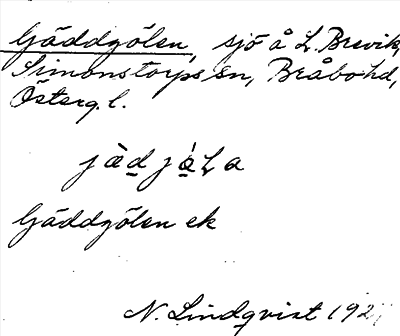 Gäddgölen, sjö å L. Brevik,
Simonstorps sn, Bråbo hd,
Österg. l.
Gäddgölen ek
N. Lindqvist